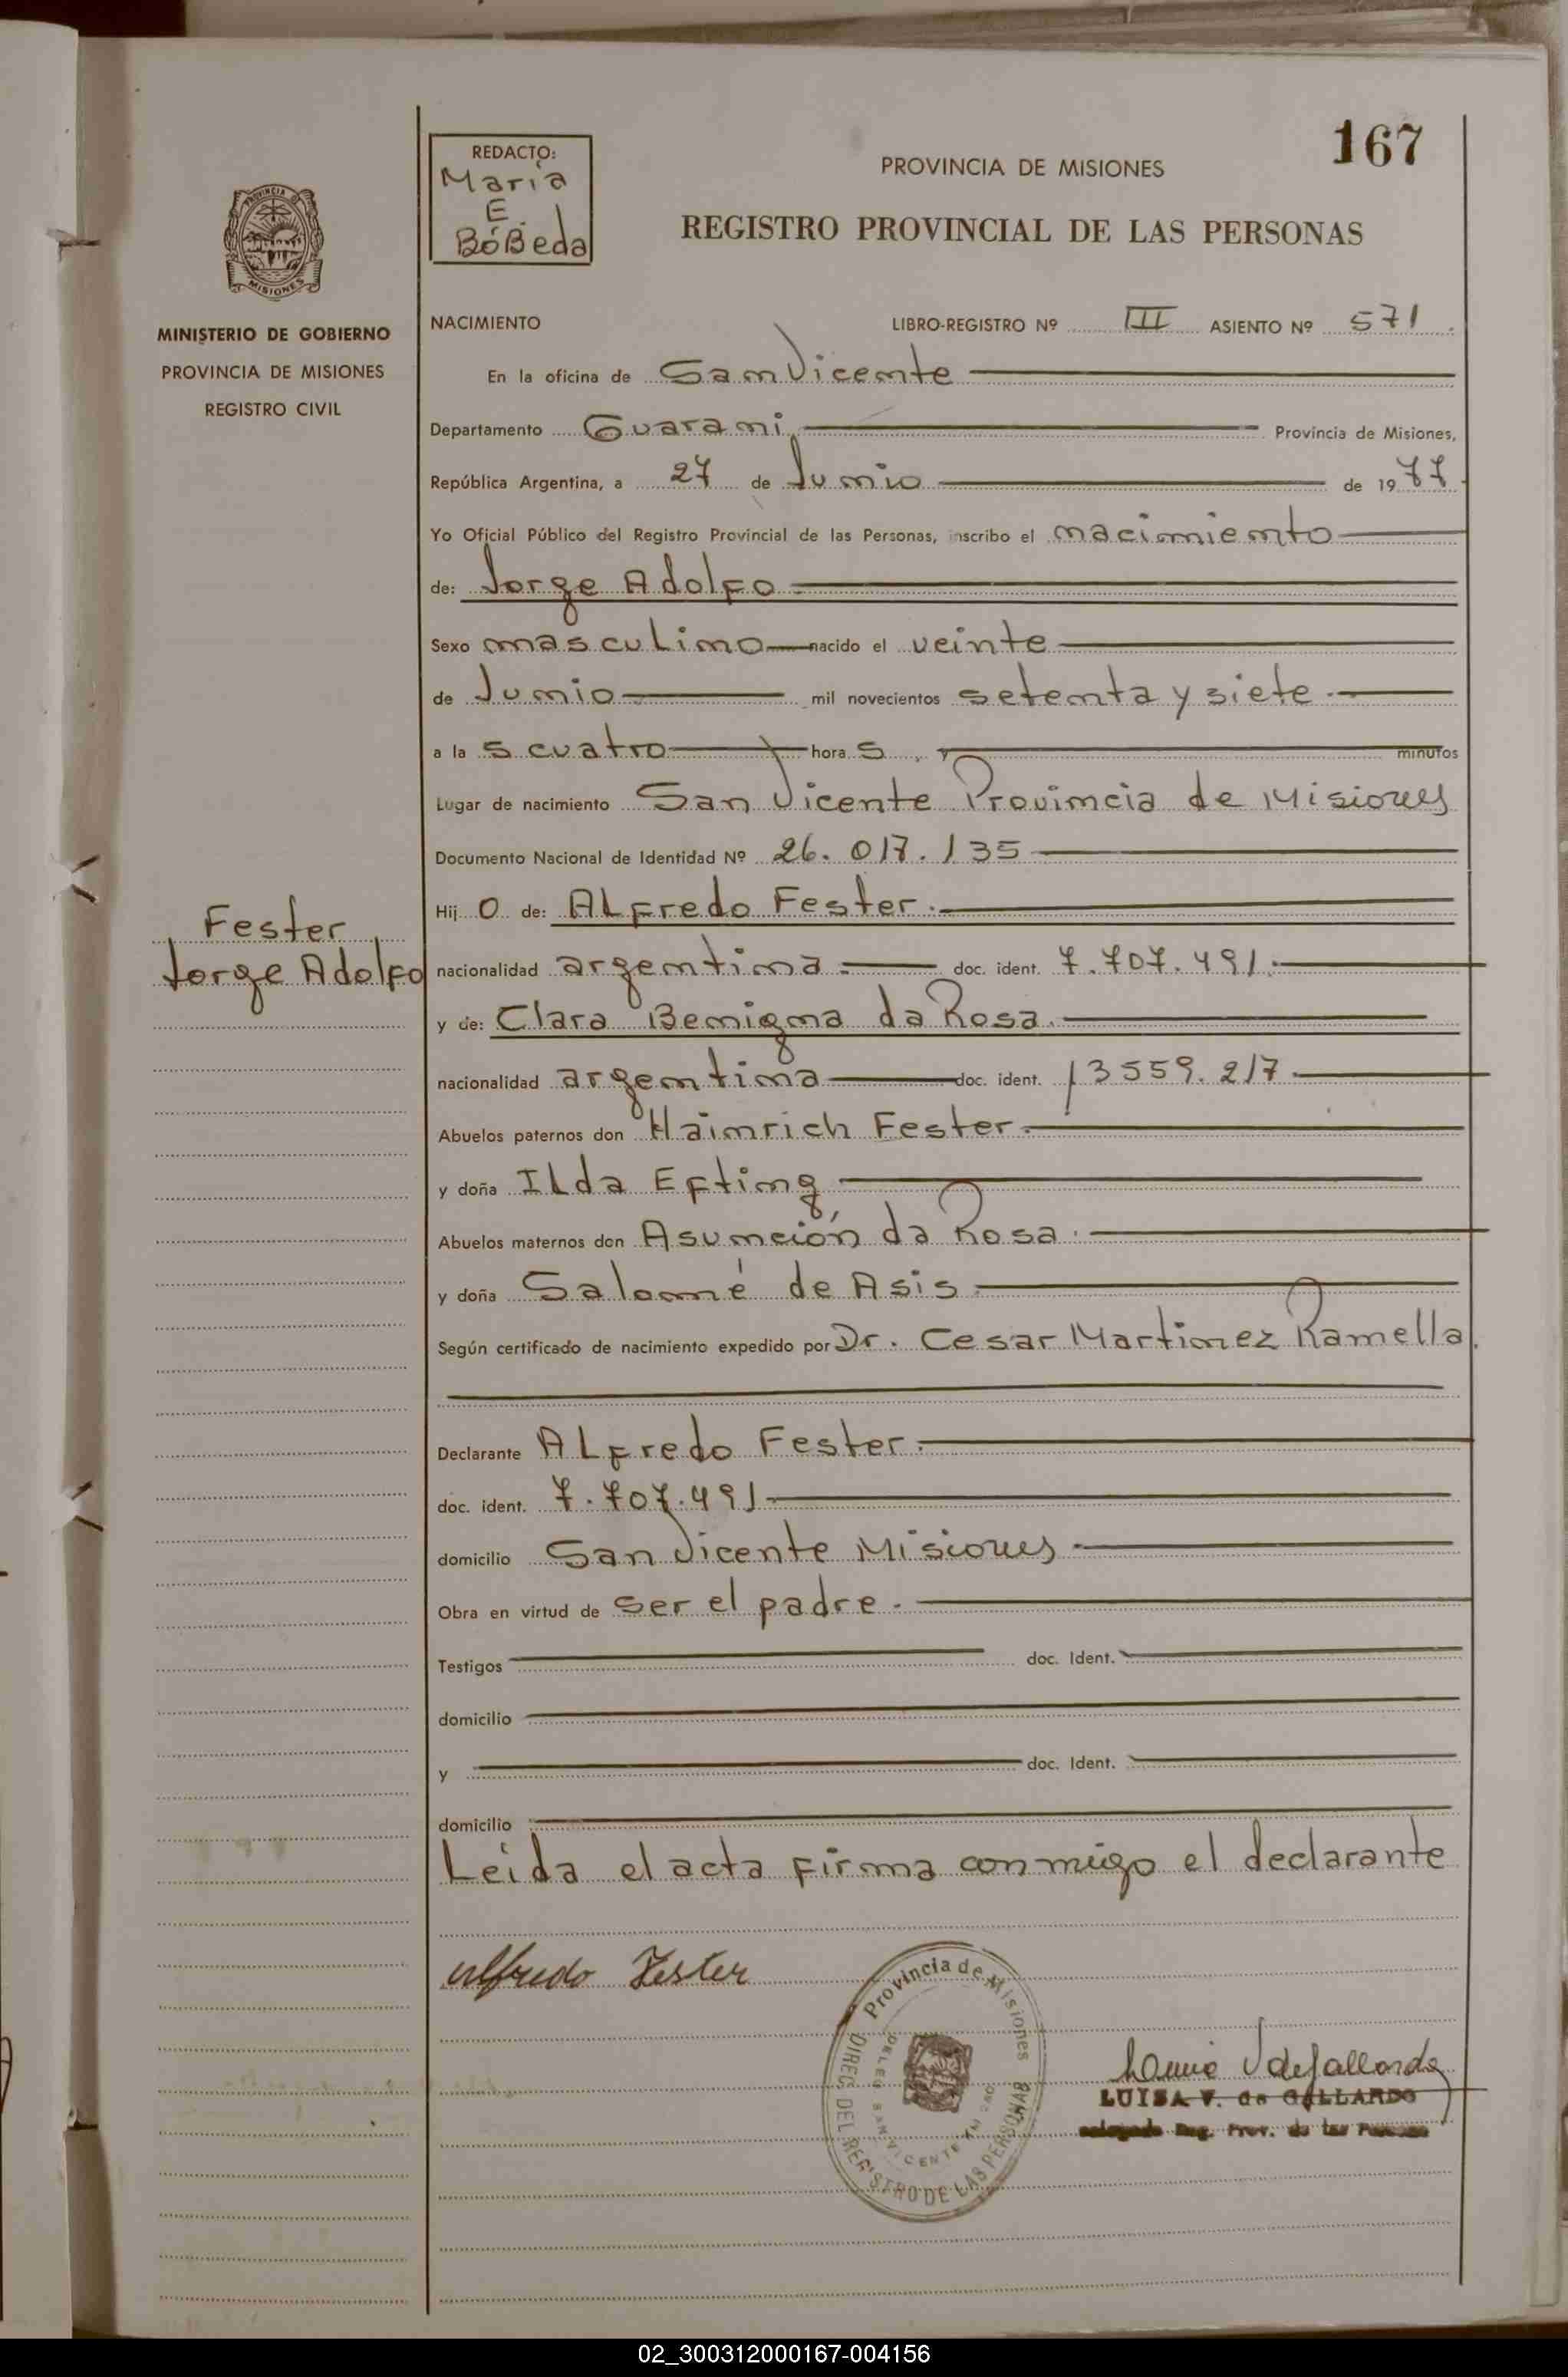 167
REDACTÓ:
Maria
E.
BóBeda
PROVINCIA DE MISIONES
REGISTRO PROVINCIAL DE LAS PERSONAS
PROVINCIA
MISIONES
MINISTERIO DE GOBIERNO
PROVINCIA DE MISIONES
REGISTRO CIVIL
NACIMIENTO LIBRO-REGISTRO Nº III ASIENTO Nº 571.
En la oficina de San Vicente
Departamento Guarani, Provincia de Misiones,
República Argentina, a 27 de Junio de 1977.
Yo Oficial Público del Registro Provincial de las Personas, inscribo el nacimiento
de: Jorge Adolfo
Sexo masculino nacido el veinte
de Junio mil novecientos setenta y siete.
a las cuatro horas, y minutos
Lugar de nacimiento San Vicente Provincia de Misiones
Documento Nacional de Identidad Nº 26.017.135
Hijo de: ALfredo Fester.
Fester
Jorge Adolfo
nacionalidad argentina doc. ident. 7.707.491.
y de: Clara Benigna da Rosa.
nacionalidad argentina doc. ident. 13559.217.
Abuelos paternos don Hainrich Fester.
y doña ILda Efting
Abuelos maternos don Asunción da Rosa.
y doña Salomé de Asis
Según certificado de nacimiento expedido por Dr. Cesar Martinez Ramella.
Declarante ALfredo Fester.
doc. ident. 7.707.491
domicilio San Vicente Misiones
Obra en virtud de ser el padre.
Testigos doc. Ident.
domicilio
y doc. Ident.
domicilio
Leida el acta firma conmigo el declarante
Alfredo Fester
Provincia de Misiones
DIREC. DEL REGISTRO DE LAS PERSONAS
SAN VICENTE
LUISA V. de GALLARDO
Reg. Prov. de las
02_300312000167-004156